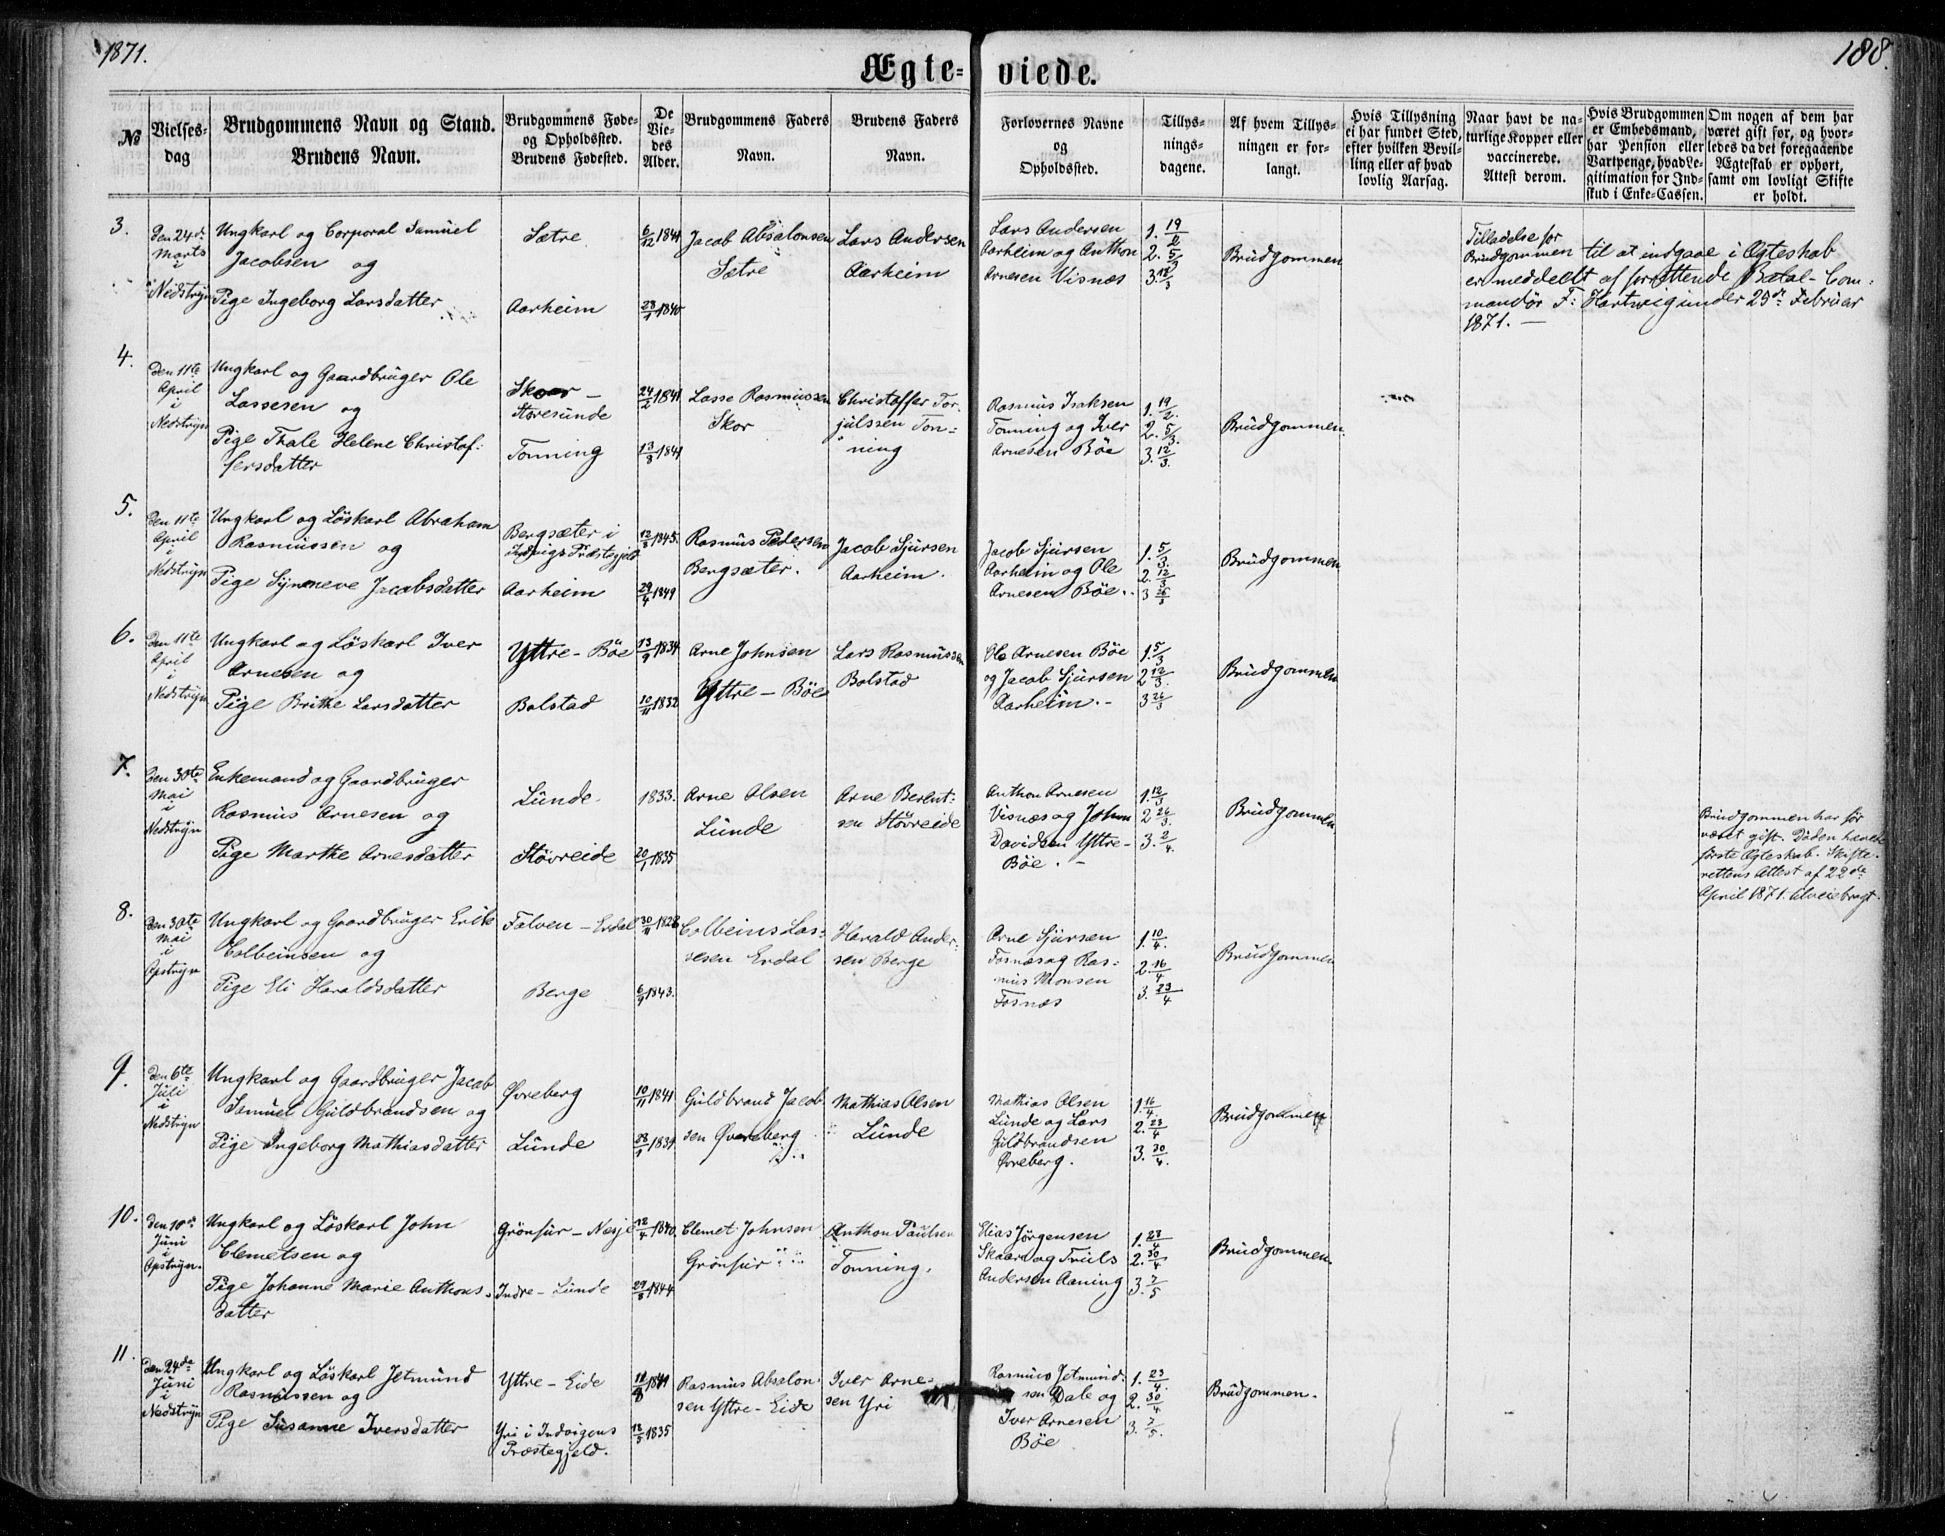 1871.
188.
Ægte- viede.
№
Vielses-
dag
Brudgommens Navn og Stand.
Brudens Navn.
Brudgommens Føde-
og Opholdssted.
Brudens Fødested.
De
Vie-
des
Alder.
Brudgommens Faders
Navn.
Brudens Faders
Navn.
Forlovernes Navne
og
Opholdssted.
Tillys-
nings-
dagene.
Af hvem Tillys-
ningen er for-
langt.
Hvis Tillysning
ei har fundet Sted,
efter hvilken Bevil-
ling eller af hvad
lovlig Aarsag.
Naar havt de na-
turlige Kopper eller
vaccinerede.
Attest derom.
Hvis Brudgommen
er Embedsmand,
har Pension eller
Vartpenge, hvad Le-
gitimation for Ind-
skud i Enke-Cassen.
Om nogen af dem har
været gift før, og hvor-
ledes da det foregaaende
Ægteskab er ophørt,
samt om lovligt Skifte
er holdt.
3.
Den 24de
Marts
i
Nedstryn
Ungkarl og Corporal Samuel
Jacobsen og
Pige Ingeborg Larsdatter
Sætre
Aarheim
6/12 1841
23/1 1840
Jacob Absalonsen
Sætre
Lars Andersen
Aarheim
Lars Andersen
Aarheim og Anthon
Arnesen Visnæs
1. 19/2
2. 5/3
3. 12/3
Brudgommen
Tilladelse for
Brudgommen til at indgaae i Ægteskab
er meddeelt af fors. Betal-Com-
mandør F: Hartwig under 25de Februar
1871. —
4.
Den 11te
April
i
Nedstryn
Ungkarl og Gaardbruger Ole
Lassesen og
Pige Thale Helene Christof-
fersdatter
Skor -
Storesunde
Tonning
24/2 1841
13/8 1841
Lasse Rasmussen
Skor
Christoffer Tor-
julssen Ton-
ning
Rasmus Isaksen
Tonning og Iver
Arnesen Böe
1. 19/2.
2. 5/3.
3. 12/3.
Brudgommen.
5.
Den 11te
April
i
Nedstryn
Ungkarl og Löskarl Abraham
Rasmussen og
Pige Synneve Jacobsdatter
Bergsæter i
Indvigs Præstegjeld
Aarheim
12/8 1845.
29/4 1849
Rasmus Pedersen
Bergsæter.
Jacob Sjursen
Aarheim.
Jacob Sjursen
Aarheim og Ole
Arnesen Böe.
1. 5/3.
2. 12/3
3 26/3
Brudgommen
6.
Den 11te
April
i
Nedstryn
Ungkarl og Löskarl Iver
Arnesen og
Pige Brithe Larsdatter
Yttre - Böe
Bolstad
13/9 1834
10/11 1832
Arne Johnsen
Yttre - Böe
Lars Rasmussen
Bolstad
Ole Arnesen Böe
og Jacob Sjursen
Aarheim. -
1 5/3
2 12/3.
3 26/3
Brudgommen
7.
Den 30te
Mai
i
Nedstryn
Enkemand og Gaardbruger
Rasmus Arnesen og
Pige Marthe Arnesdatter
Lunde.
Stövreide
1833.
20/1 1835
Arne Olsen
Lunde
Arne Berent-
sen Stövreide
Anthon Arnesen
Visnæs og Johan
Davidsen Yttre-
Böe. -
1. 12/3
2 26/3.
3. 2/4.
Brudgommen
Brudgommen har för
været gift. Döden hævede
förste Ægteskab. Skifte-
rettens Attest af 22de
April 1871. 
8.
Den 30te
Mai
i
Opstryn
Ungkarl og Gaardbruger Erik
Colbeinsen og
Pige Eli Haraldsdatter
Folven - Erdal
Berge
30/11 1828
6/9 1843.
Colbeins Las-
sesen Erdal
Harald Ander-
sen Berge
Arne Sjursen
Fosnæs og Ras-
mus Monsen
Fosnæs
1. 10/4.
2. 16/4
3. 23/4
Brudgommen
9.
Den 6te
Juli
i
Nedstryn
Ungkarl og Gaardbruger Jacob
Samuel Guldbrandsen og
Pige Ingeborg Mathiasdatter
Øvreberg
Lunde
10/11 1841
23/1 1839
Guldbrand Jacob-
sen Øvreberg
Mathias Olsen
Lunde
Mathias Olsen
Lunde og Lars
Guldbrandsen
Øvreberg.
1. 16/4.
2. 23/4
3. 30/4.
Brudgommen
10.
Den 10de
Juni
i
Opstryn.
Ungkarl og Löskarl John
Clemetsen og
Pige Johanne Marie Anthons-
datter
Grönfur - Nesje
Indre - Lunde
12/4 1840.
29/8 1844
Clemet Johnsen
Grönfur
Anthon Paulsen
Tonning.
Elias Jörgensen
Skaare og Truls
Andersen Aaning
1. 23/4
2. 30/4
3. 7/5
Brudgommen.
11.
Den 24de
Juni
i
Nedstryn
Ungkarl og Löskarl Jetmund
Rasmussen og
Pige Susanne Iversdatter
Yttre - Eide
Yri i Indvigens
Præstegjeld.
1841
12/5 1835
Rasmus Absalon-
sen Yttre - Eide
Iver Arne-
sen Yri
Rasmus Jetmund-
sen Dale og
Iver Arnesen
Böe
1. 23/4.
2. 30/4
3. 7/5.
Brudgommen.